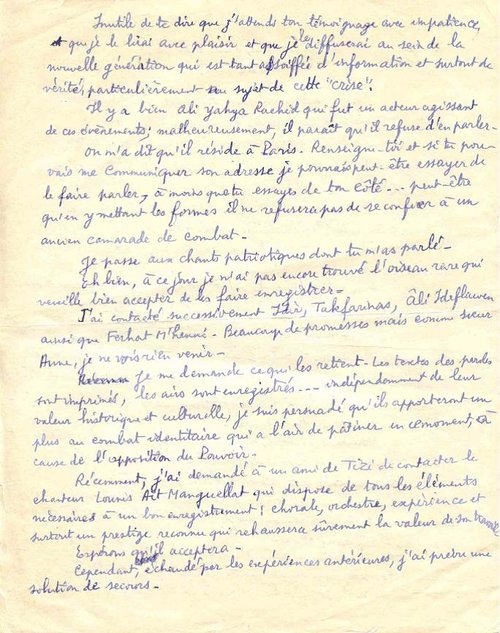 Inutile de te dire que j'attends ton témoignage avec impatience,
et que je le lirai avec plaisir et que je le diffuserai au sein de la
nouvelle génération qui est tant assoiffée d'information et surtout de
vérité, particulièrement au sujet de cette "crise".
Il y a bien Ali Yahya Rachid qui fut un acteur agissant
de ces évènements; malheureusement, il paraît qu'il refuse d'en parler.
On m'a dit qu'il réside à Paris. Renseigne-toi et si tu pou-
vais me communiquer son adresse je pourrais peut-être essayer de
le faire parler, à moins que tu essayes de ton côté... peut-être
qu'en y mettant les formes il ne refusera pas de se confier à un
ancien camarade de combat.
Je passe aux chants patriotiques dont tu m'as parlé.
Eh bien, à ce jour je n'ai pas encore trouvé l'oiseau rare qui
veuille bien accepter de les faire enregistrer.
J'ai contacté successivement Idir, Takfarinas, Âli Ideflawen
ainsi que Ferhat M'henni. Beaucoup de promesses mais comme sœur
Anne, je ne vois rien venir.
Je me demande ce qui les retient. Les textes des paroles
sont imprimés, les airs sont enregistrés... indépendamment de leur
valeur historique et culturelle, je suis persuadé qu'ils apporteront un
plus au combat identitaire qui a l'air de patiner en ce moment, à
cause de l'opposition du Pouvoir.
Récemment, j'ai demandé à un ami de Tizi de contacter le
chanteur Lounis Aït Manguellat qui dispose de tous les éléments
nécessaires à un bon enregistrement: chorale, orchestre, expérience et
surtout un prestige reconnu qui rehaussera sûrement la valeur de son travail
Espérons qu'il acceptera.
Cependant, échaudé par les expériences antérieures, j'ai prévu une
solution de secours.